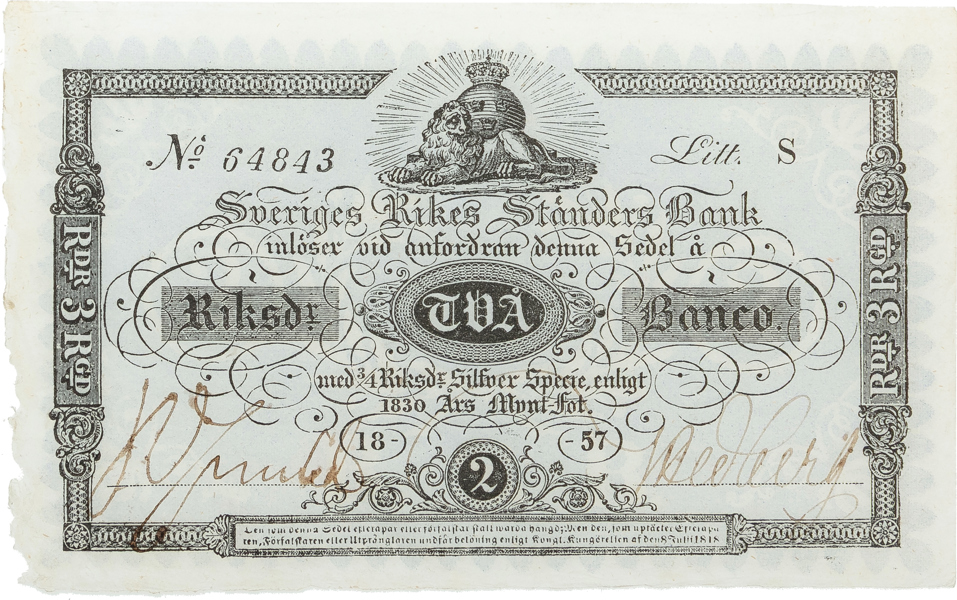 No 64843
Litt. S
Sveriges Rikes Ständers Bank
inlöser vid anfordran denna Sedel å
Riksdr TVÅ Banco.
RDR 3 RGD
RDR 3 RGD
med 3/4 Riksdr Silfver Specie, enligt
1830 Års Mynt-Fot.
18 - - 57
2
Den som denna Sedel efterapar eller förfalskar skall warda hängd; Men den, som uptäcker Efterapa-
ren, Förfalskaren eller Utprånglaren undfår belöning enligt Kongl. Kungörelsen af den 8 Julii 1818